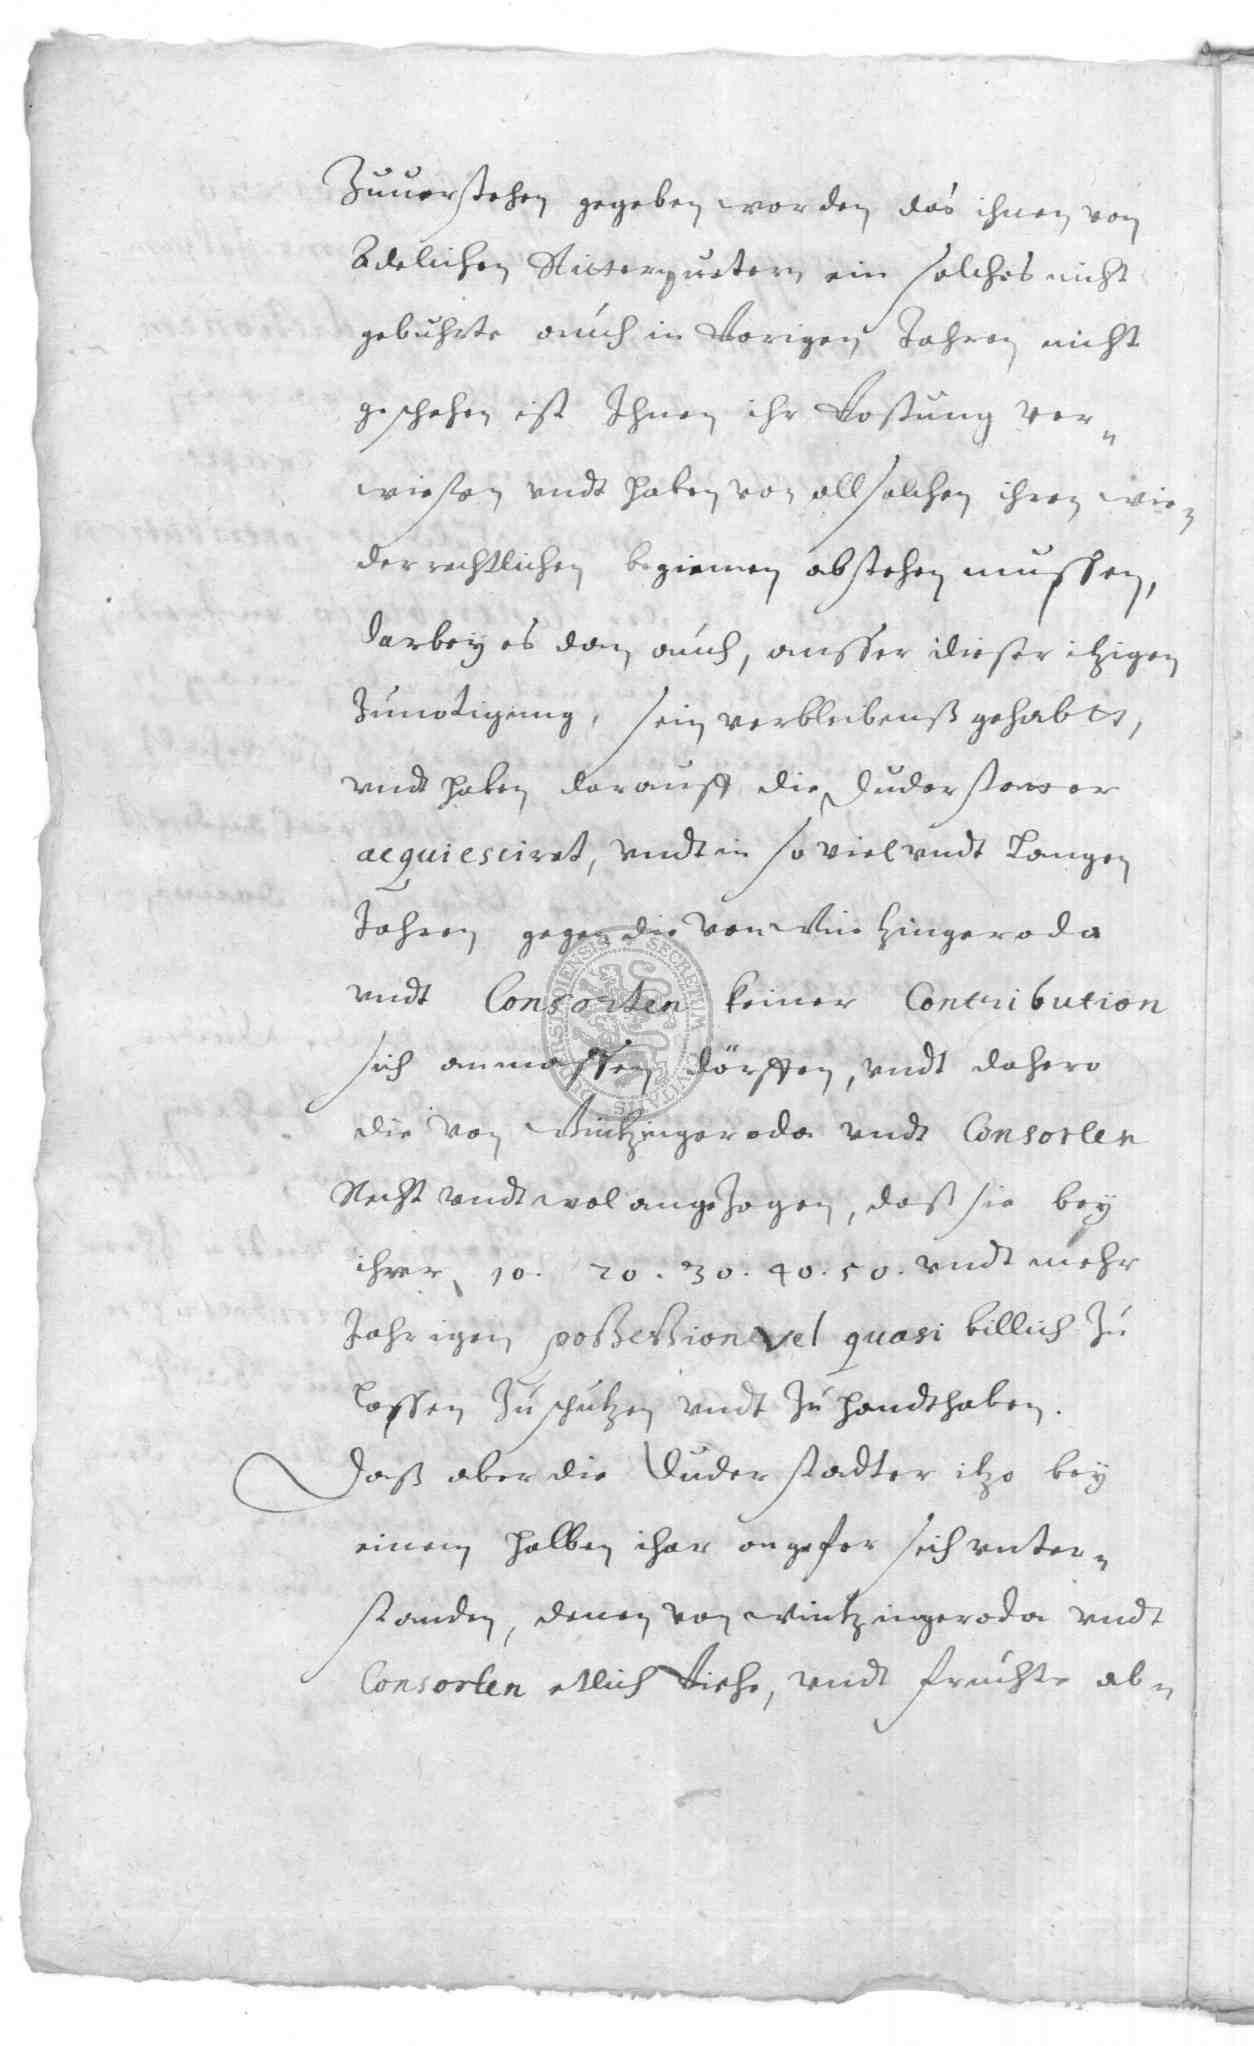 Zuuerstehen gegeben worden das ihnen von
Adelichen Rittergutern ein solches nicht
gebuhrte auch in Vorigen Jahren nicht
geschehen ist Ihnen ihr Vostung ver-
wiesen vndt haben von all solchen ihren wie-
derrechtlichen beginnen abstehen mussen,
darbey es dan auch, ausser dieser itzigen
Zunotigung, sein verbleibenß gehabtt,
vndt haben darauff die Duderstetter
acquiesciret, vndt in so viel vndt Langen
Jahren gegen die von Wintzingeroda
vndt Consorten keiner Contribution
sich anmassen dörffen, vndt dahero
die von Wintzingeroda vndt Consorten
Recht vndt wol angezogen, daß sie bey
ihrer 10. 20. 30. 40. 50. vndt mehr
Jahrigen possessione vel quasi billich Zu
Lassen Zu schutzen vndt Zu handthaben.
Daß aber die Duderstadter itzo bey
einem halben ihar ongefer sich unter-
standen, denen von Wintzingeroda vndt
Consorten etlich Viehe, vndt fruchte ab-
SECRETUM CIVITATIS